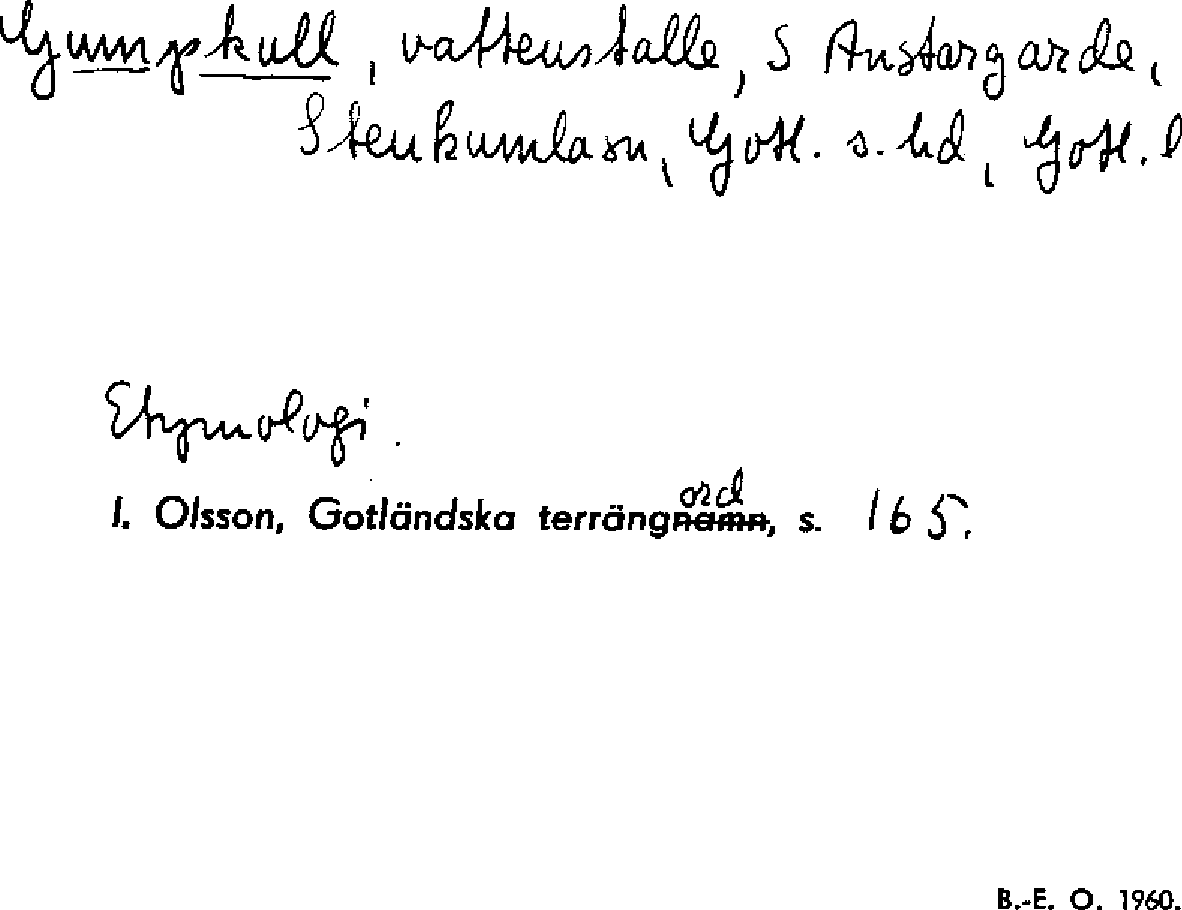 Gumpskull, vattenställe, S Austargarde,
Stenkumla sn, Gotl. s. hd, Gotl. l
Etymologi.
ord
I. Olsson, Gotländska terrängnamn, s. 165.
B.-E. O. 1960.